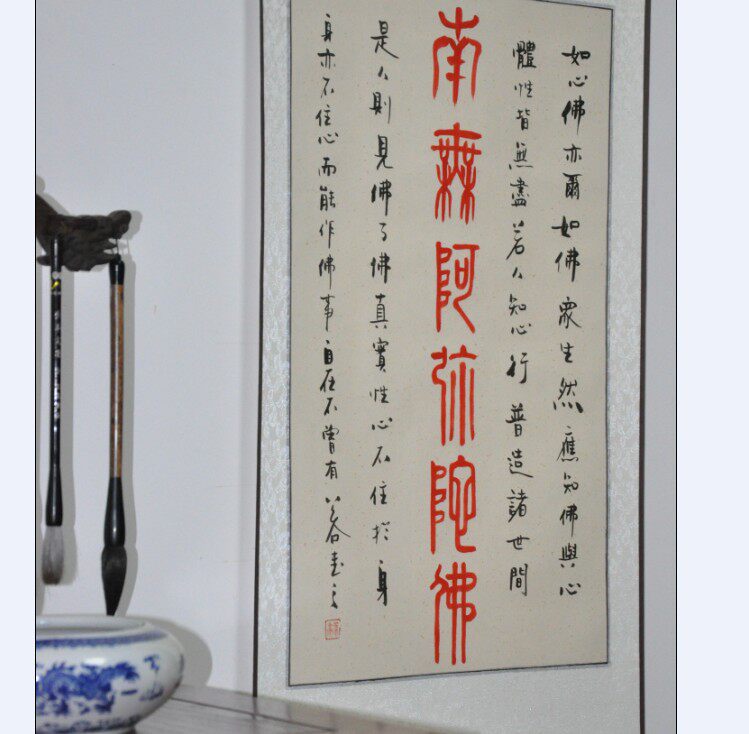 如心佛亦爾如佛眾生然應知佛與心
體性皆無盡若人知心行普造諸世間
南無阿弥陀佛
是人則見佛了佛真實性心不住於身
身亦不住心而能作佛事自在不曾有